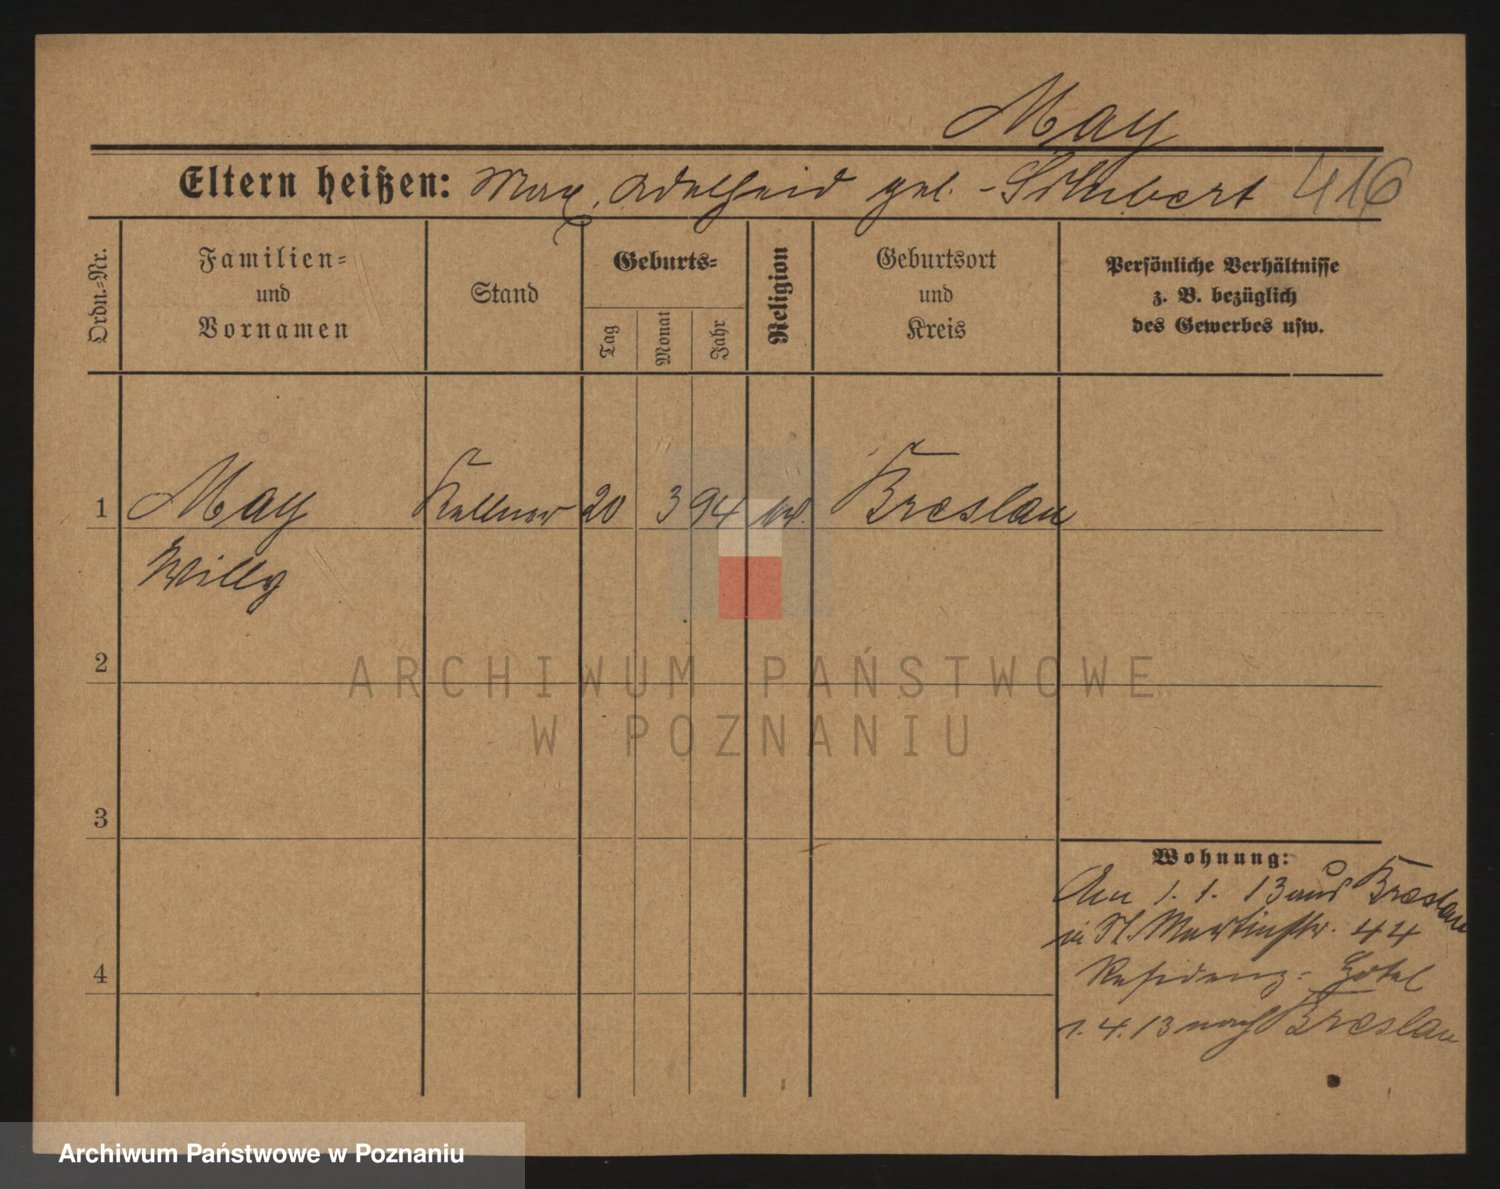 May
Eltern heißen: Max, Adelheid geb. Schubert 416
Ordn.-Nr.
Familien-
und
Vornamen
Stand
Geburts-
Tag
Monat
Jahr
Religion
Geburtsort
und
Kreis
Persönliche Verhältnisse
z. B. bezüglich
des Gewerbes usw.
1 May Kellner 20 3 94 Breslau
Willy
2
3
4
Wohnung:
Am 1. 1. 13 aus Breslau
in St. Martinstr. 44
Residenz-Hotel
1. 4. 13 nach Breslau
ARCHIWUM PAŃSTWOWE
W POZNANIU
Archiwum Państwowe w Poznaniu